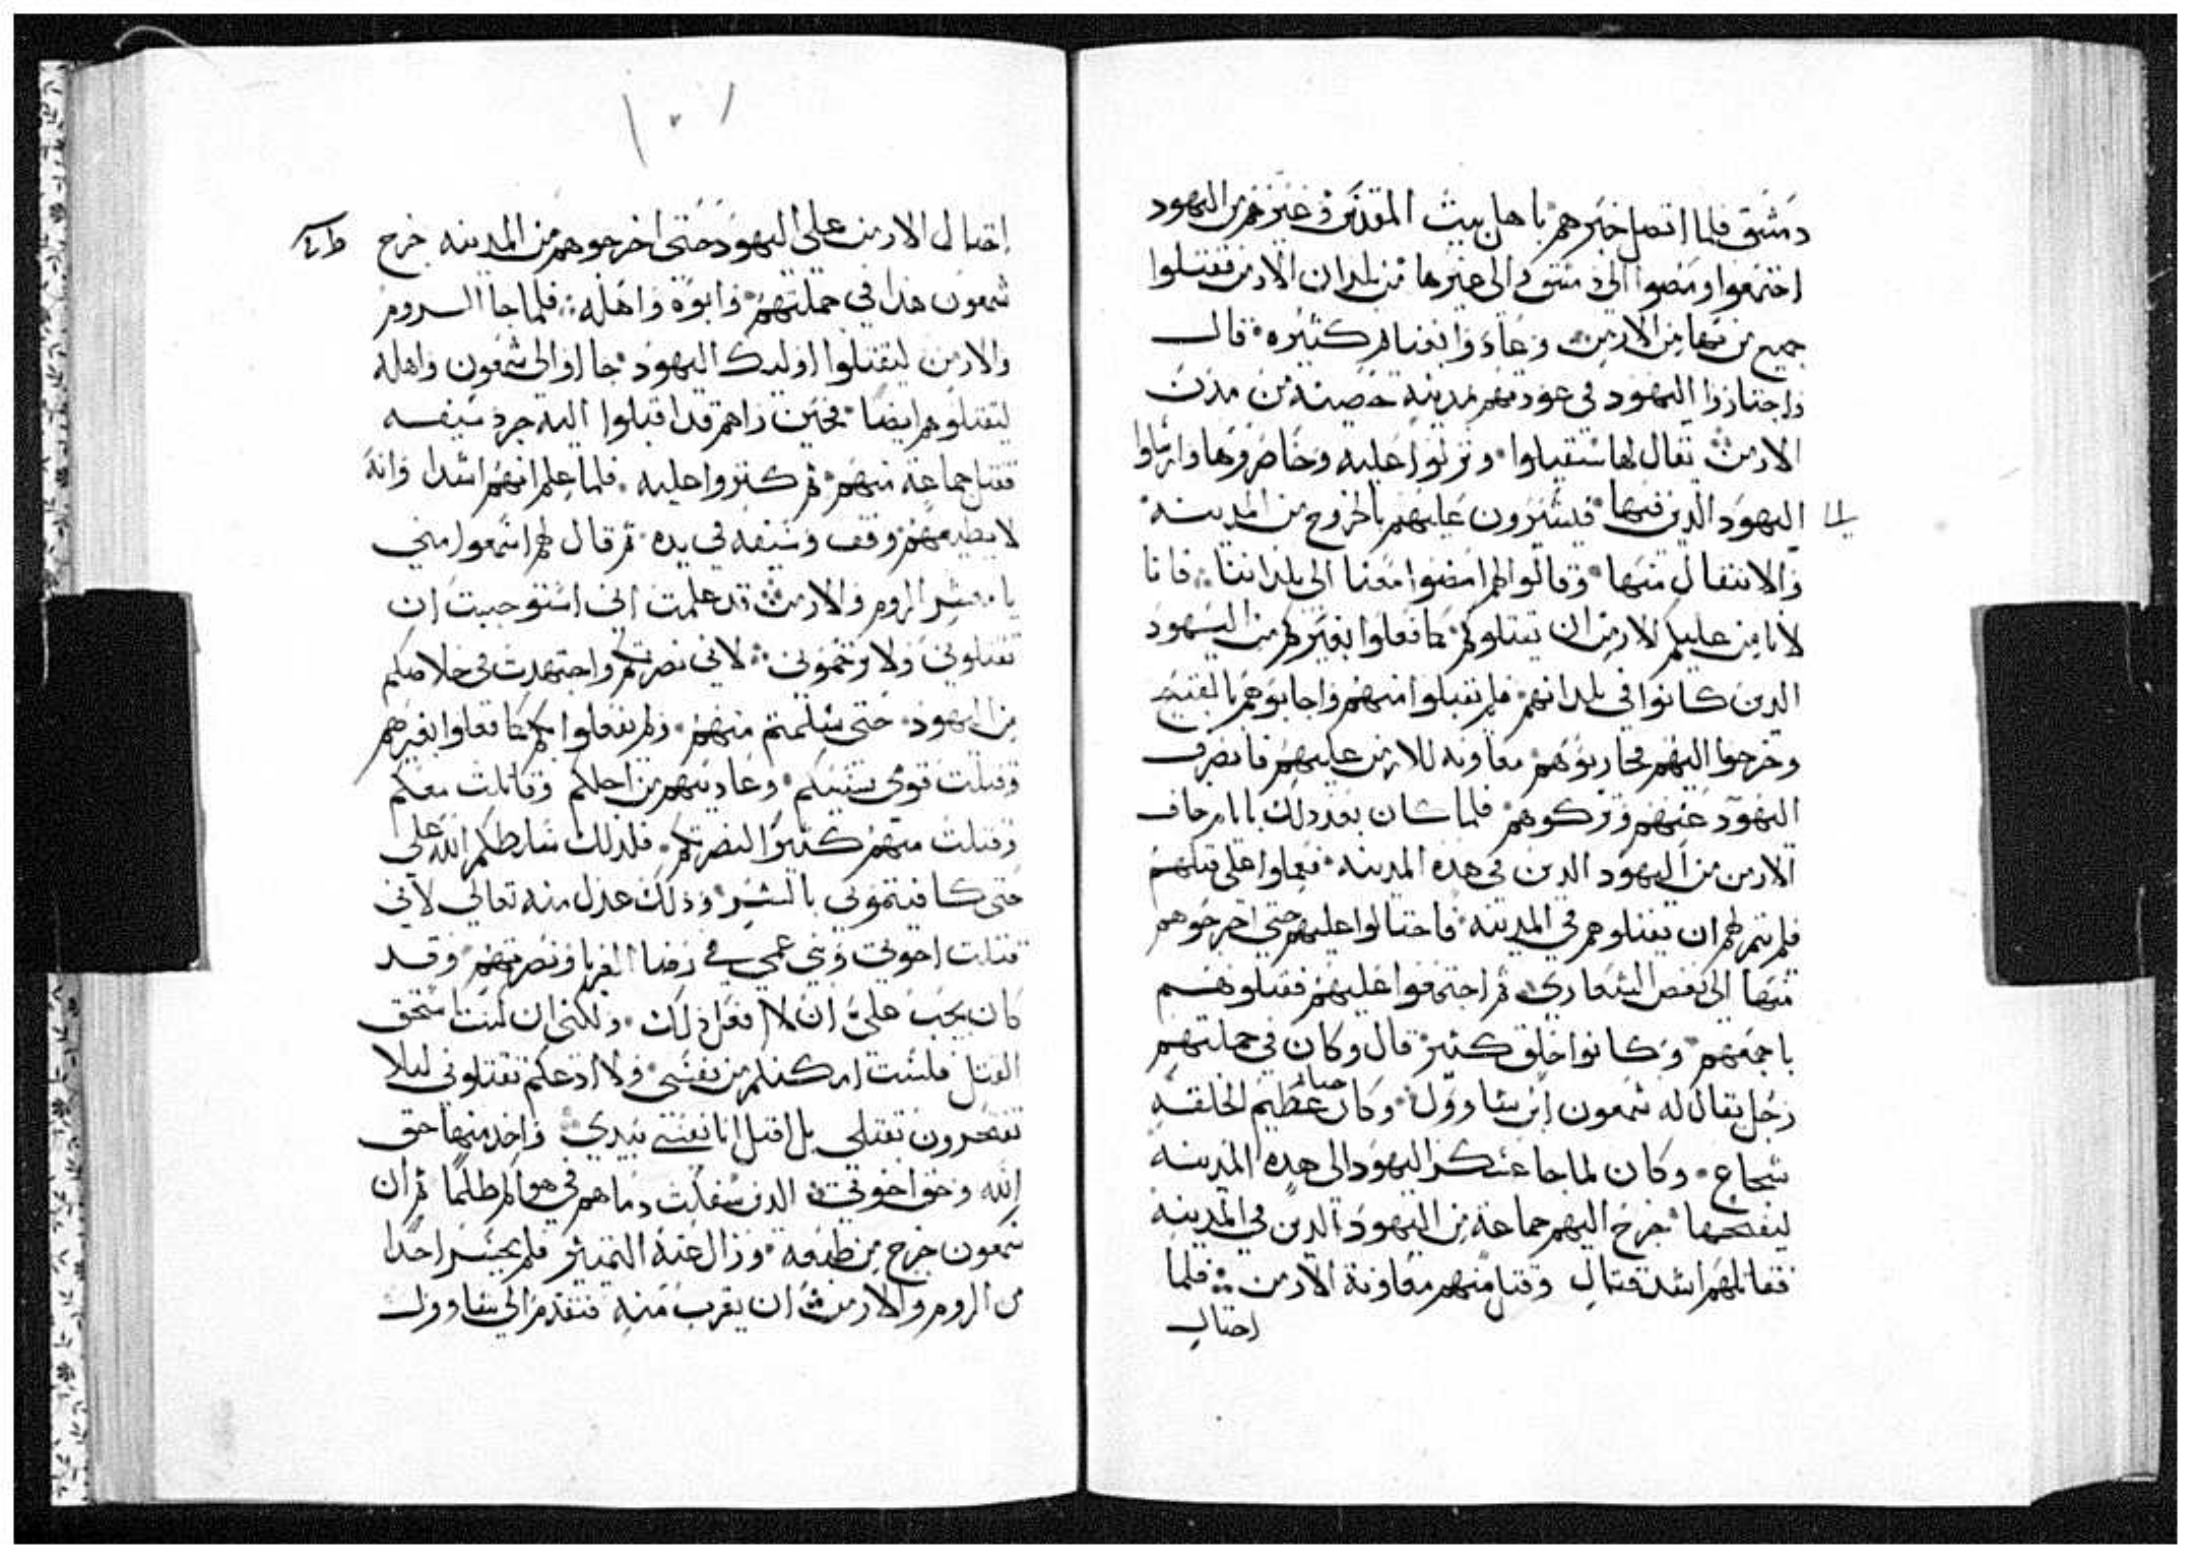 دمشق فلما اتصل خبرهم باهل بيت المقدس وغيرهم من اليهود
اجتمعوا ومضوا الى دمشق والى غيرها من بلدان الارمن فقتلوا
جميع من بها من الارمن وعادوا بغنايم كثيره قال
واجتازوا اليهود في عودتهم بمدينه حصينه من مدن
الارمن يقال لها سقيلوا ونزلوا عليه وحاصروها وارسلوا
الى
اليهود الدين فيها فيشيرون عليهم بالخروج من المدينه
والانتقال منها وقالوا لهم امضوا معنا الى بلداننا فانا
لا نامن عليكم الارمن ان يقتلوكم كما فعلوا بغيركم من اليهود
الدين كانوا في بلدانهم فلم يقبلوا منهم واجابوهم بالقبيح
وخرجوا اليهم فحاربوهم معاونه للارمن عليهم فانصرف
اليهود عنهم وتركوهم فلما كان بعد ذلك بايام خاف
الارمن من اليهود الدين في هده المدينه فعملوا على قتلهم
فلم يتم لهم ان يقتلوهم في المدينه فاحتالوا عليهم حتى اخرجوهم
منها الى بعض الشعاري ثم اجتمعوا عليهم فقتلوهم
باجمعهم وكانوا خلق كثير قال وكان في جملتهم
رجل يقال له شمعون ابن شاوول وكان جبار عظيم الخلقه
شجاع وكان لما جا عسكر اليهود الى هده المدينه
ليفتحها خرج اليهم جماعة من اليهود الدين في المدينه
فقاتلهم اشد قتال وقتل منهم معاونة الارمن فلما
احتال
١٠٦
احتال الارمن على اليهود حتى اخرجوهم من المدينه خرج
شمعون هدا في جملتهم وابوه واهله فلما جا الروم
والارمن ليقتلوا اوليك اليهود جااوا الى شمعون واهله
ليقتلوهم ايضا فحين راهم قد اقبلوا اليه جرد سيفه
فقتل جماعة منهم ثم كتروا عليه فلما علم انهم اشدا وانه
لا يطيقهم وقف وسيفه في يده ثم قال لهم اسمعوا مني
يا معشر الروم والارمن قد علمت اني استوجبت ان
تقتلوني ولا ترحموني لاني نصرتكم واجتهدت في خلاصكم
من اليهود حتى سلمتم منهم ولم يفعلوا بكم كما فعلوا بغيركم
وقتلت قومي بسببكم وعاديتهم من اجلكم وقاتلت معكم
وقتلت منهم كثيرا لنصرتكم فلدلك سلطكم الله علي
حتى كافيتموني بالشر وذلك عدل منه تعالى لاني
قتلت اخوتي وبني عمي في رضا الغربا ونصرتهم وقد
كان يجب علي ان لا افعل ذلك ولكني ان كنت استحق
القتل فلست امكنكم من نفسي ولا ادعكم تقتلوني ليلا
تفتخرون بقتلي بل اقتل انا نفسي بيدي واخد منها حق
الله وحق اخوتي الدين سفكت دماهم في هواكم ظلما ثم ان
شمعون خرج من طبعه وزال عنه التمييز فلم يجسر احدا
من الروم والارمن ان يقرب منه فتقدم الى شاوول